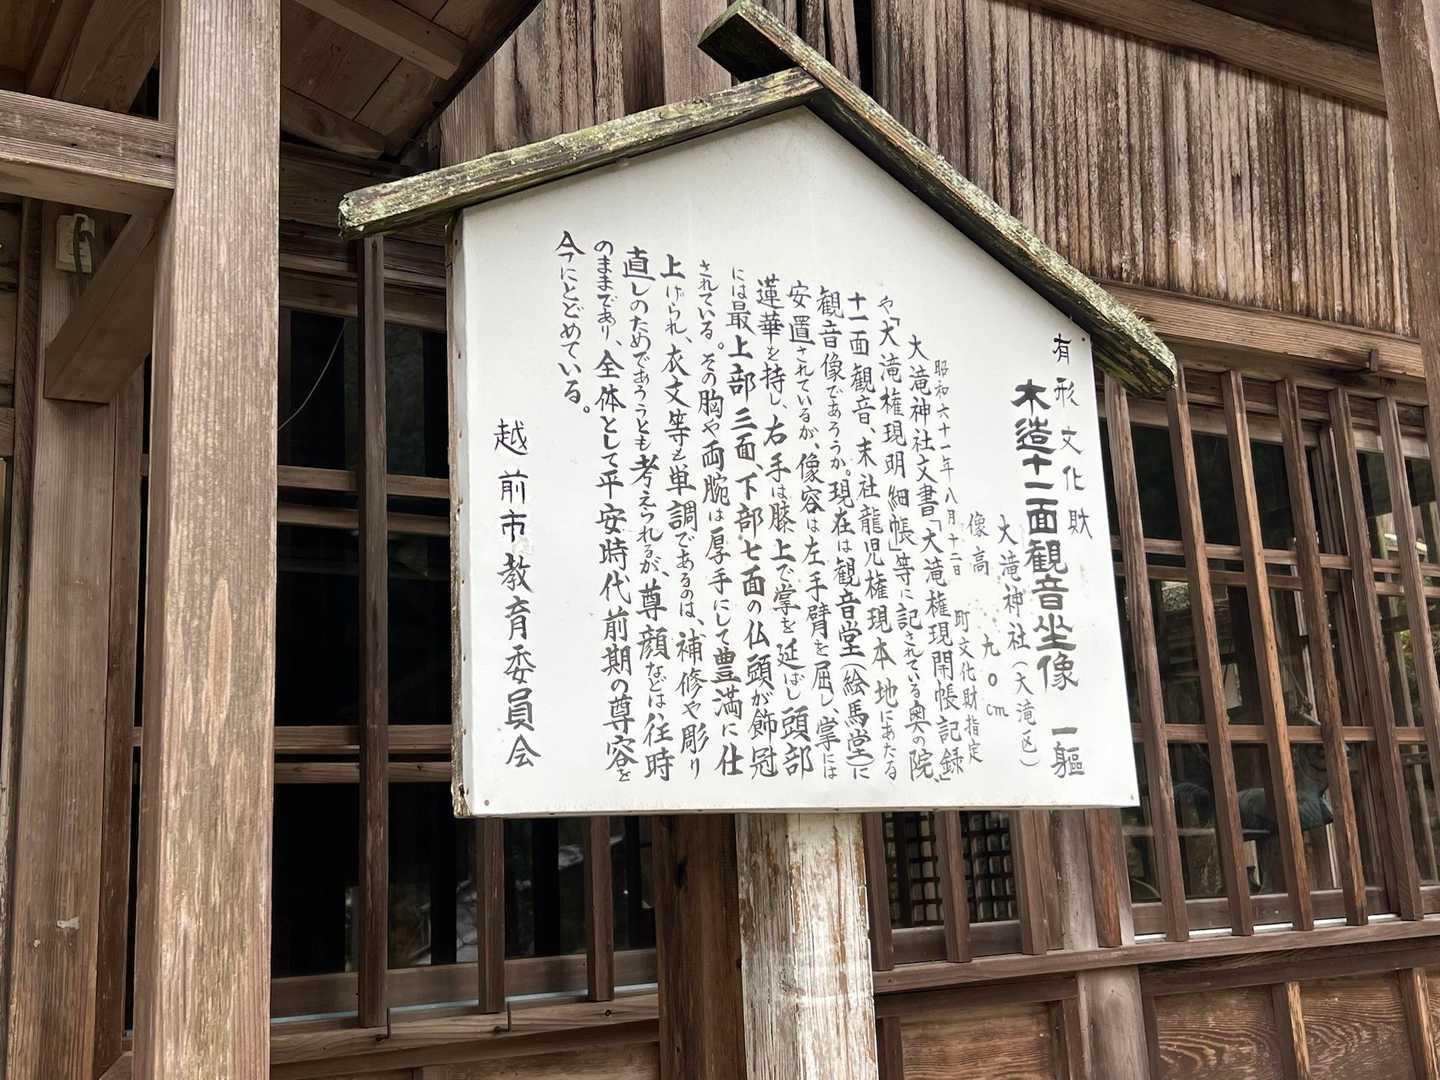 有形文化財
木造十一面観音坐像　一軀
大滝神社（大滝区）
像高　九〇cm
昭和六十一年八月十二日　町文化財指定
大滝神社文書「大滝権現開帳記録」
や「大滝権現明細帳」等に記されている奥の院、
十一面観音、末社龍児権現本地にあたる
観音像であろうか。現在は観音堂（絵馬堂）に
安置されているが、像容は左手臂を屈し、掌には
蓮華を持し、右手は膝上で掌を延ばし頭部
には最上部三面、下部七面の仏頭が飾冠
されている。その胸や両腕は厚手にして豊満に仕
上げられ、衣文等も単調であるのは、補修や彫り
直しのためであろうとも考えられるが、尊顔などは往時
のままであり、全体として平安時代前期の尊容を
今にとどめている。
越前市教育委員会